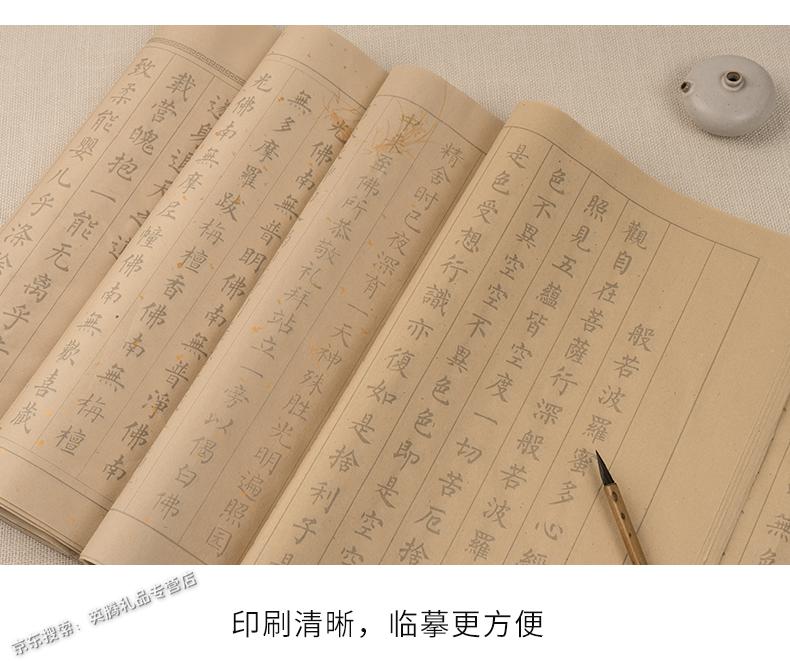 般若波羅蜜多心經
觀自在菩薩行深般若波羅
照見五蘊皆空度一切苦厄捨
色不異空空不異色色即是空空
是色受想行識亦復如是捨利子是
精舍时已夜深有一天神殊胜光明遍照园
中来至佛所恭敬礼拜站立一旁以偈白佛
光佛南無普明佛南無普淨佛南
無多摩羅跋栴檀香佛南無栴檀
光佛南無摩尼幢佛南無歡喜藏
遂身退天之道
载营魄抱一能无离乎
致柔能婴儿乎涤除
印刷清晰，临摹更方便
京东搜索：英腾礼品专营店